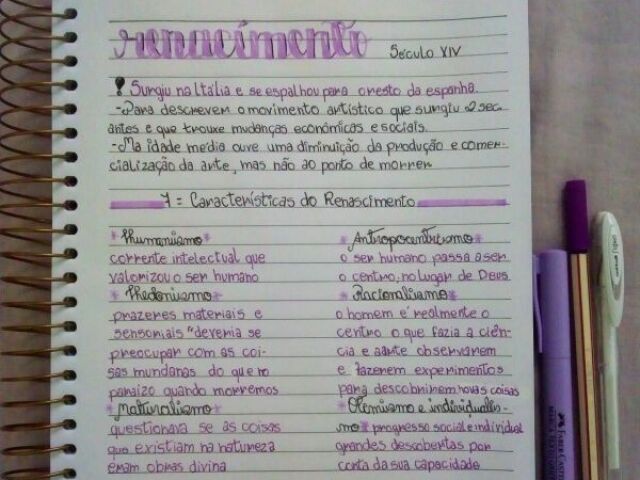 renacimento Século XIV
! Surgiu na Itália e se espalhou para o resto da espanha.
-Para descrever o movimento artístico que surgiu 2 sec.
antes e que trouxe mudanças econômicas e sociais.
-Na idade media ouve uma diminuição da produção e comer-
cialização da arte, mas não ao ponto de morrer
7 = Características do Renascimento
*Humanismo*
corrente intelectual que
valorizou o ser humano
*Hedonismo*
prazeres materiais e
sensoriais "deveria se
preocupar com as coi-
sas mundanas do que ro
paraizo quando morremos
*Naturalismo*
questionava se as coisas
que existiam na natureza
eram obras divina
*Antropocentrismo
o ser humano passa a ser
o centro, no lugar de Deus
*Racionalismo*
o homem é realmente o
centro o que fazia a ciên-
cia e a arte observarem
e fazerem experimentos
para descobrirem novas coisas
*Otimismo e individualis-
mo* progresso social e individual
grandes descobertas por
conta da sua capacidade
FABER-CASTELL